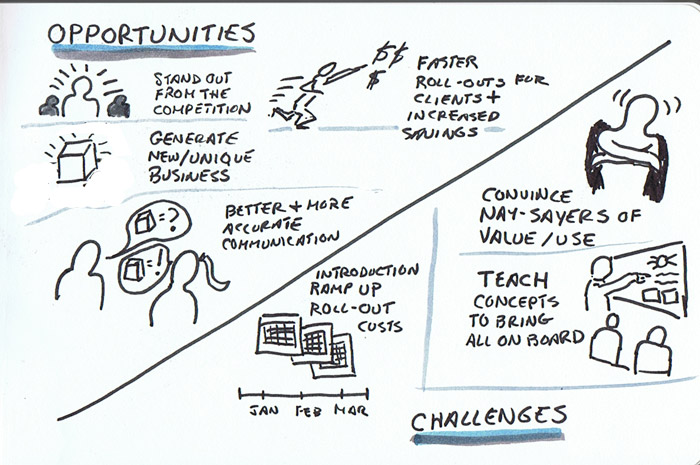 OPPORTUNITIES
STAND OUT
FROM THE
COMPETITION
$$
$
FASTER
ROLL-OUTS FOR
CLIENTS +
INCREASED
SAVINGS
GENERATE
NEW/UNIQUE
BUSINESS
BETTER + MORE
ACCURATE
COMMUNICATION
=?
=!
INTRODUCTION
RAMP UP
ROLL-OUT
COSTS
JAN FEB MAR
CONVINCE
NAY-SAYERS OF
VALUE/USE
TEACH
CONCEPTS
TO BRING
ALL ON BOARD
CHALLENGES